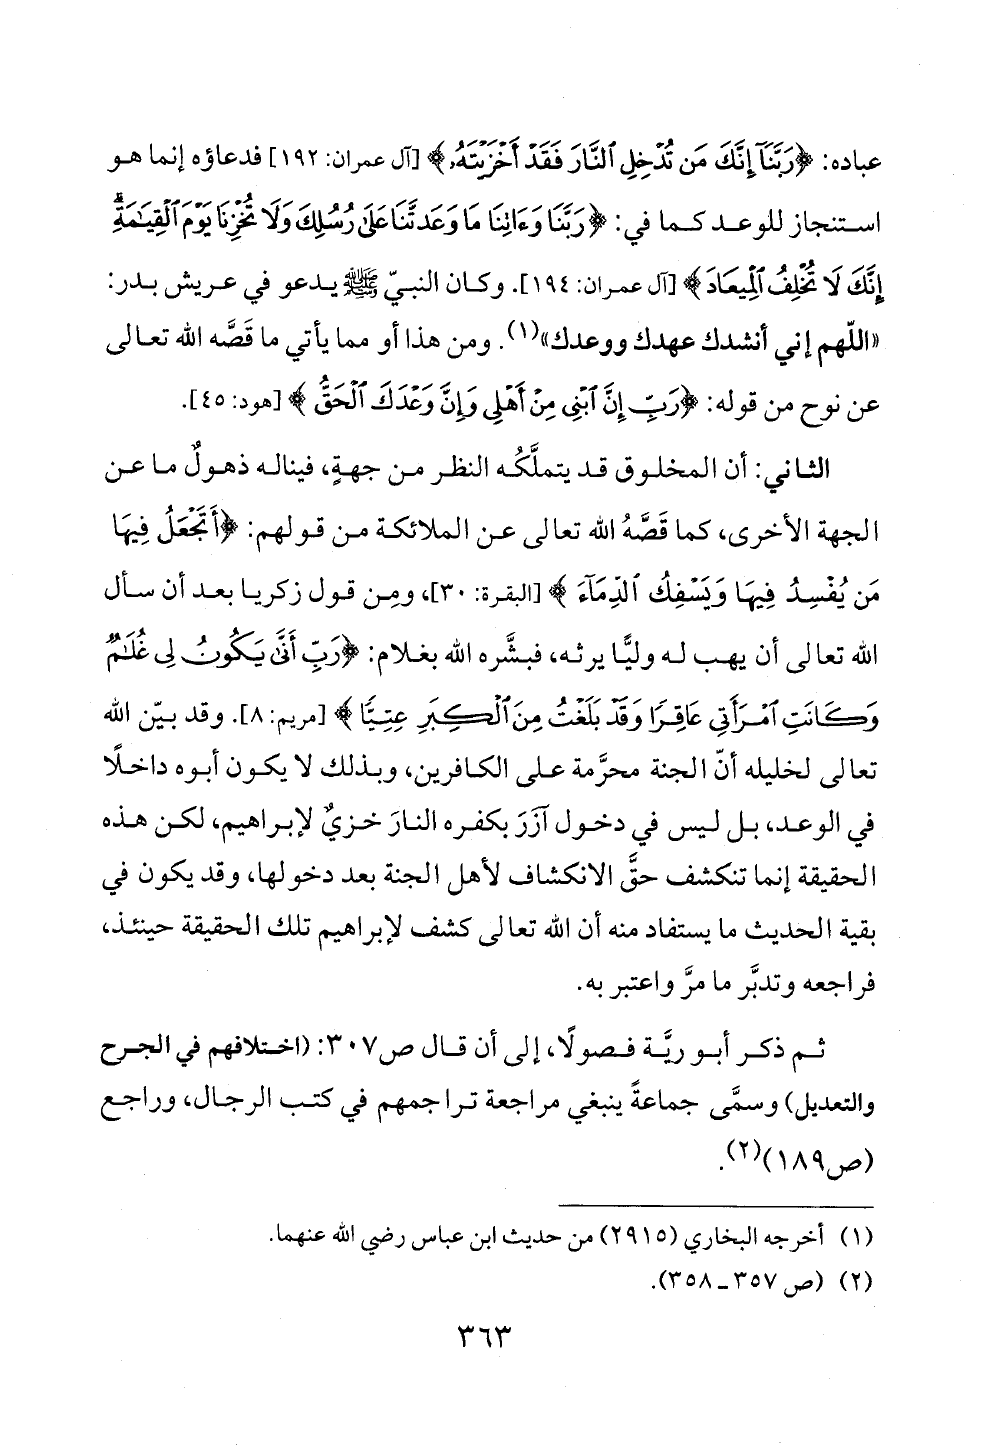 عباده: ﴿رَبَّنَآ إِنَّكَ مَن تُدْخِلِ ٱلنَّارَ فَقَدْ أَخْزَيْتَهُۥ﴾ [آل عمران: ١٩٢] فدعاؤه إنما هو
استنجاز للوعد كما في: ﴿رَبَّنَا وَءَاتِنَا مَا وَعَدتَّنَا عَلَىٰ رُسُلِكَ وَلَا تُخْزِنَا يَوْمَ ٱلْقِيَٰمَةِۗ
إِنَّكَ لَا تُخْلِفُ ٱلْمِيعَادَ﴾ [آل عمران: ١٩٤]. وكان النبيّ ﷺ يدعو في عريش بدر:
«اللّهم إني أنشدك عهدك ووعدك»(١). ومن هذا أو مما يأتي ما قَصَّه الله تعالى
عن نوح من قوله: ﴿رَبِّ إِنَّ ٱبْنِي مِنْ أَهْلِي وَإِنَّ وَعْدَكَ ٱلْحَقُّ﴾ [هود: ٤٥].
الثاني: أن المخلوق قد يتملَّكُه النظر من جهةٍ، فيناله ذهولٌ ما عن
الجهة الأخرى، كما قَصَّهُ الله تعالى عن الملائكة من قولهم: ﴿أَتَجْعَلُ فِيهَا
مَن يُفْسِدُ فِيهَا وَيَسْفِكُ ٱلدِّمَآءَ﴾ [البقرة: ٣٠]، ومِن قول زكريا بعد أن سأل
الله تعالى أن يهب له وليًّا يرثه، فبشَّره الله بغلام: ﴿رَبِّ أَنَّىٰ يَكُونُ لِي غُلَٰمٌ
وَكَانَتِ ٱمْرَأَتِي عَاقِرًا وَقَدْ بَلَغْتُ مِنَ ٱلْكِبَرِ عِتِيًّا﴾ [مريم: ٨]. وقد بيّن الله
تعالى لخليله أنّ الجنة محرَّمة على الكافرين، وبذلك لا يكون أبوه داخلًا
في الوعد، بل ليس في دخول آزَرَ بكفره النارَ خزيٌ لإبراهيم، لكن هذه
الحقيقة إنما تنكشف حقَّ الانكشاف لأهل الجنة بعد دخولها، وقد يكون في
بقية الحديث ما يستفاد منه أن الله تعالى كشف لإبراهيم تلك الحقيقة حينئذ،
فراجعه وتدبَّر ما مرَّ واعتبر به.
ثم ذكر أبو ريَّة فصولًا، إلى أن قال ص٣٠٧: (اختلافهم في الجرح
والتعديل) وسمَّى جماعةً ينبغي مراجعة تراجمهم في كتب الرجال، وراجع
(ص١٨٩)(٢).
(١) أخرجه البخاري (٢٩١٥) من حديث ابن عباس رضي الله عنهما.
(٢) (ص ٣٥٧ـ ٣٥٨).
٣٦٣